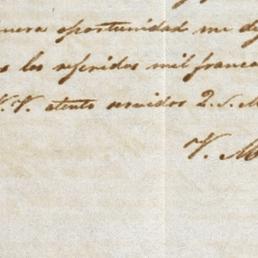 oportunidad me
los referidos mil
V.V. atento servidor Q.S.M
V. M